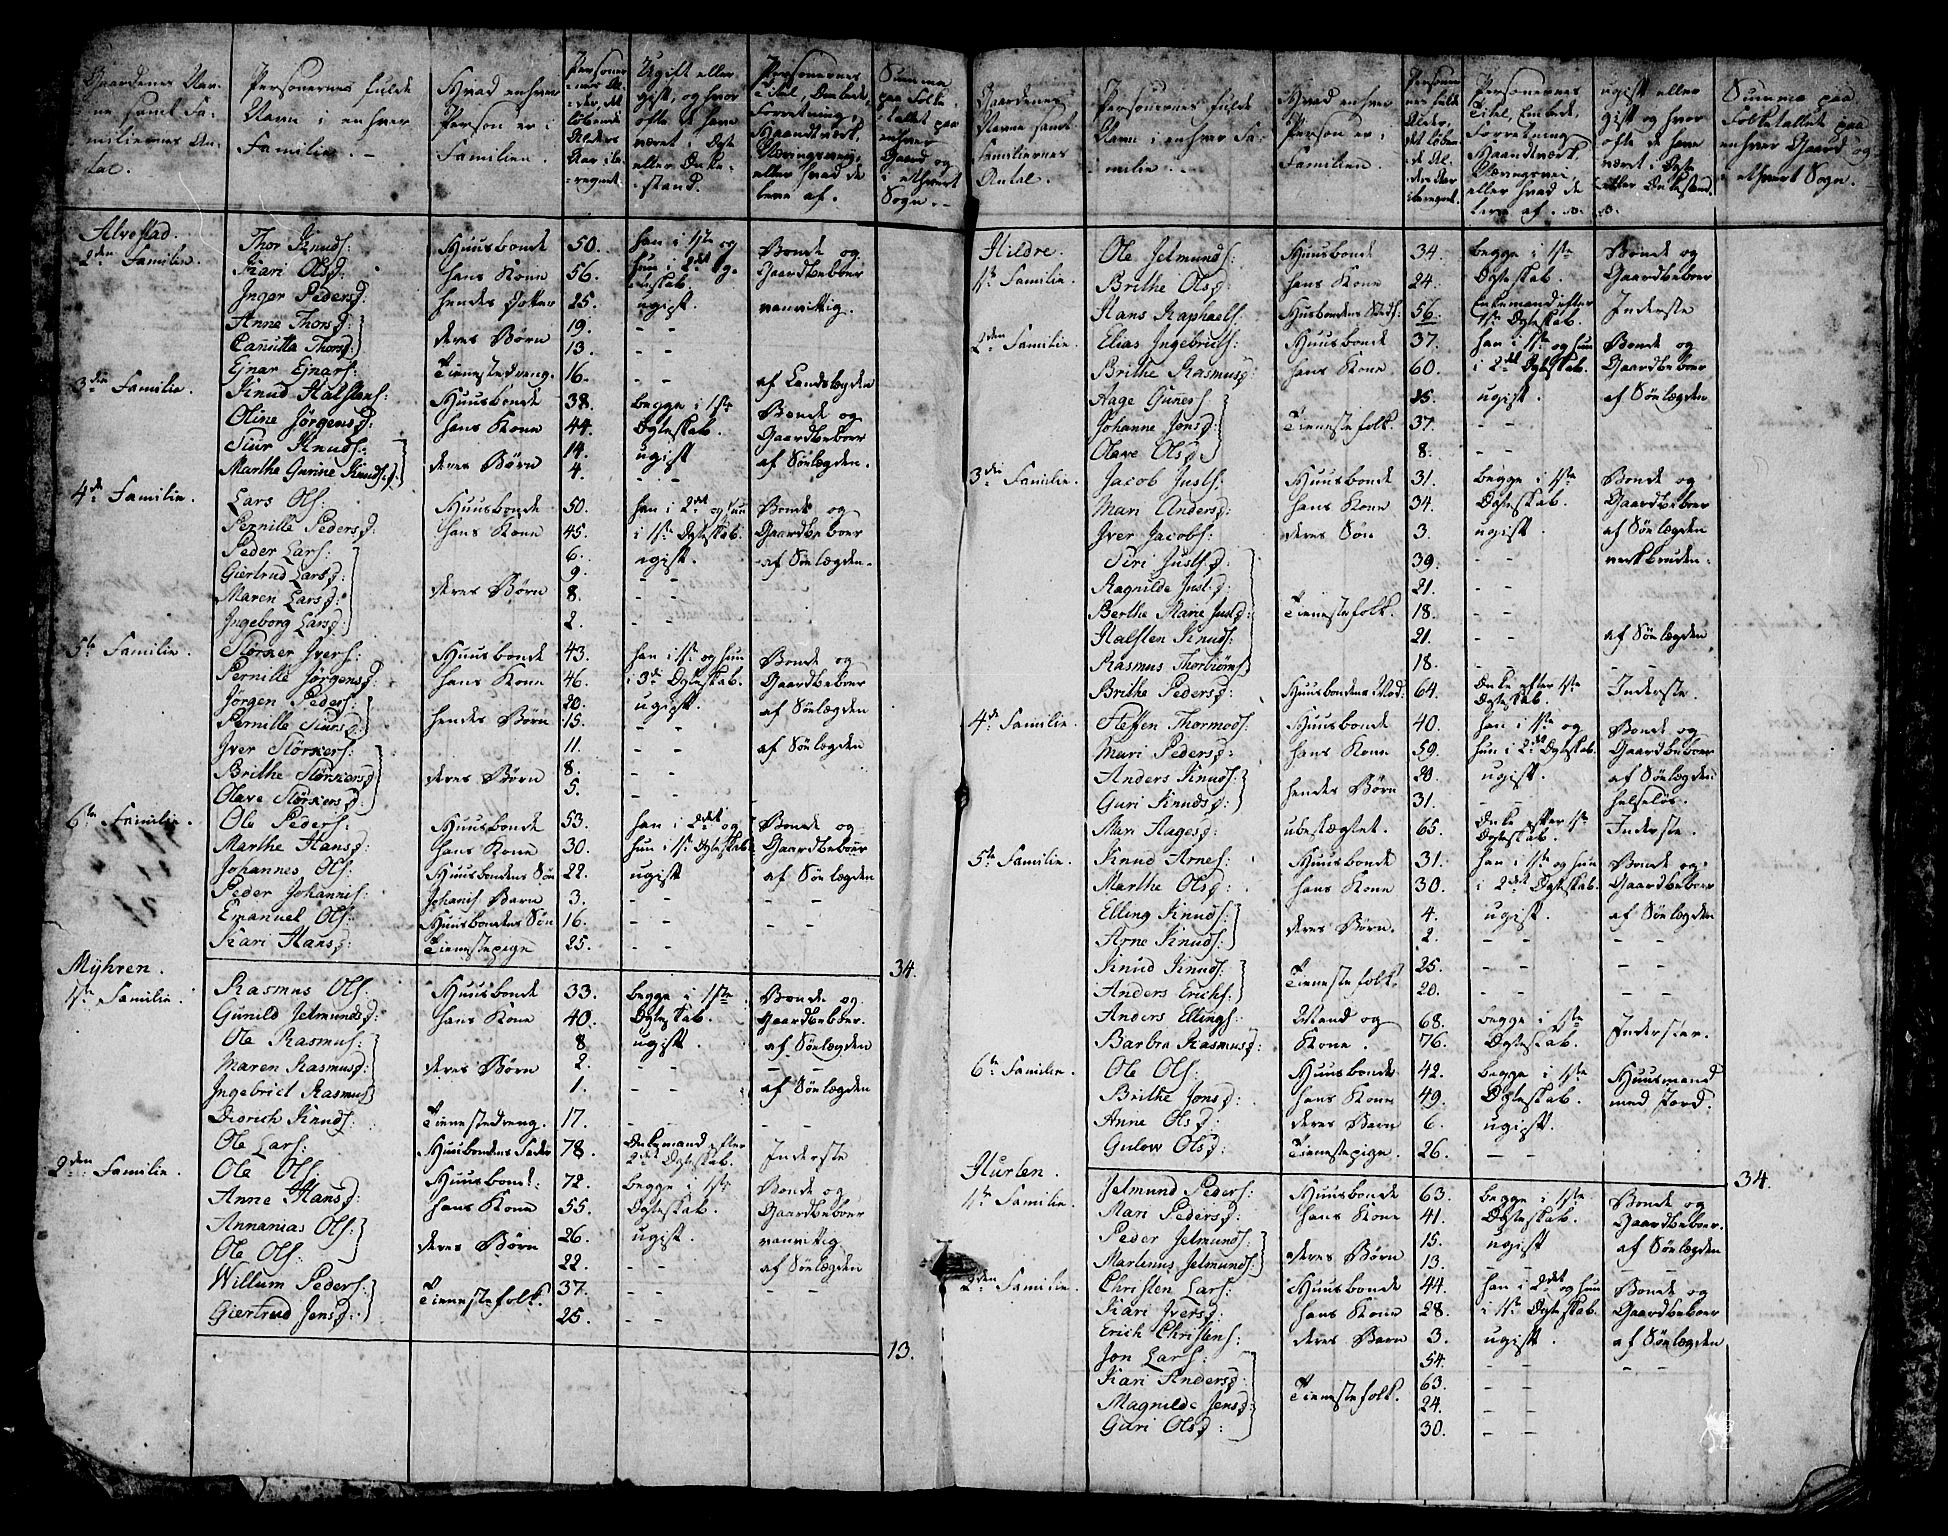 Gaardenes Nav-
ne samt Fa-
miliernes An-
tal.
Personernes fulde
Navn i enhver
Familie. -
Hvad enhver
Person er i
Familien.
Ugift eller
gift, og hvor
ofte de have
været i Ægte
eller Enke-
stand.
Personernes
Titel, Embede,
Forretning,
Haandtværk,
Næringsvei,
eller hvad de
leve af.
Summa
paa Folke-
tallet paa
enhver
Gaard og
i ethvert
Sogn. -
Alvestad
2den Familie. Thor Knuds: Huusbonde 50. han i 1ste og Bonde og
Kari Olsd: hans Kone 56. hun i 2det Æg- Gaardbeboer
Inger Pedersd: hendes Dotter 25. ugift. vanvittig.
Anne Thorsd: 19. - -
Canutta Thorsd: deres Børn 13. - -
Ejnar Ejnars: Tienestedreng. 16. - - af Landlægden
3die Familie. Knud Halstens: Huusbonde 38. begge i 1ste Bonde og
Oline Jørgensd: hans Kone 44. Ægteskab. Gaardbeboer
Siur Knuds: 14. ugift af Sölægden.
Marthe Gurine Knudsd: deres Børn 4. - -
4de Familie. Lars Ols: Huusbonde 50. han i 2det og hun Bonde og
Pernille Pedersd: hans Kone 45. i 1ste Ægteskab. Gaardbeboer
Peder Lars: 6. ugift. af Sölægden.
Giertrud Larsd: 9. - -
Maren Larsd: deres Børn 8. - -
Ingeborg Larsd: 2. - -
5te Familie. Størker Ivers: Huusbonde 43. han i 1ste og hun Bonde og
Pernille Jørgensd: hans Kone 46. i 3die Ægteskab. Gaardbeboer
Jörgen Peders: 20. ugift. af Sölægden
Pernille Siursd: hendes Børn 15. - -
Iver Størkers: 11. - - af Sölægden
Brithe Størkersd: deres Børn 8. - -
Olave Størkersd: 5. - -
6te Familie. Ole Peders: Huusbonde 53. han i 2det og Bonde og
Marthe Hansd: hans Kone 30. hun i 1ste Ægteskab. Gaardbeboer
Johannes Ols: Huusbondens Sön 22. ugift af Sölægden
Peder Johannis: Johanis Barn 3. - - - -
Emanuel Ols: Huusbondens Sön 16. - - - -
Kari Hansd: Tienestepige 25. - -
34.
Myhren.
1ste Familie. Rasmus Ols: Huusbonde 33. begge i 1ste Bonde og
Gunild Jetmundsd: hans Kone 40. Ægteskab. Gaardbeboer.
Ole Rasmus: 8 ugift. af Sölægden
Maren Rasmusd: deres Børn 2. - - - -
Ingebrict Rasmus: 1. - - af Sölægden
Didrich Knuds: Tienestedreng. 17. - - - -
Ole Lars: Huusbondens Fader 78. Enkemand efter 2det Ægteskab. Inderste
2den Familie. Ole Ols: Huusbond: 72. begge i 1ste Bonde og
Anne Hansd: hans Kone 55. Ægteskab. Gaardbeboer
Annanias Ols: 26. ugift. vanvittig
Ole Ols: deres Børn 22. - - af Sölægden
Willum Peders: 37. - - - -
Giertrud Jensd: Tienestefolk. 25. - -
13.
Gaardenes
Navne samt
Familiernes
Antal.
Personernes fulde
Navn i enhver Fa-
milie. -
Hvad enhver
Person er i
Familien.
Personernes
Titel, Embede,
Forretning
Haandtværk,
Næringsvei,
eller hvad de
leve af.
ugift eller
gift og hvor
ofte de have
været i Ægte
eller Enkestand.
Summa paa
Folketallet paa
enhver Gaard og
i ethvert Sogn.
Hildre.
1ste Familie. Ole Jetmunds: Huusbonde 34. begge i 1ste Bonde og
Brithe Olsd: hans Kone 24. Ægteskab. Gaardbeboer
Hans Raphaels: Huusbondens 56. Enkemand efter 1ste Ægteskab. Inderste
2den Familie. Elias Ingebrict: Huusbonde 37. han i 1ste og hun Bonde og
Brithe Rasmusd: hans Kone 60. i 2det Ægteskab. Gaardbeboer
Aage Guners: 25. ugift. af Sölægden
Johanne Jonsd: Tienestefolk. 37. - -
Olave Olsd: 8. - -
3die Familie. Jacob Justs: Huusbonde 31. begge i 1ste Bonde og
Mari Andersd: hans Kone 34. Ægteskab. Gaardbeboer
Iver Jacobs: deres Sön 3. ugift. af Sölægden
Siri Justsd: 39. - - værkbruden.
Ragnilde Justd: 21. - -
Berthe Marie Justd: Tienestefolk. 18. - -
Halsten Knuds: 21. - - af Sölægden
Rasmus Thorbiörns: 18. - - - -
Brithe Pedersd: Huusbondens Mod: 64. Enke efter 1ste Ægteskab. Inderste.
4de Familie. Steffen Thormods: Huusbonde 40. han i 1ste og Bonde og
Mari Pedersd: hans Kone 59. hun i 2det Ægteskab. Gaardbeboer
Anders Knuds: 20. ugift. af Sölægden
Guri Knudsd: hendes Børn 31. - - helselös.
Mari Aagesd: ubeslægtet. 65. Enke efter 1ste Ægteskab. Inderste.
5te Familie. Knud Arnes: Huusbonde 31. han i 1ste og hun Bonde og
Marthe Olsd: hans Kone 30. i 2det Ægteskab. Gaardbeboer
Elling Knuds: 4. ugift. af Sölægden
Arne Knuds: deres Børn. 2. - - - -
Knud Knuds: 25. - - - -
Anders Erichs: Tienestefolk. 20. - - - -
Anders Ellings: Mand og 68. begge i 1ste Inderster.
Barbra Rasmusd: Kone. 76. Ægteskab.
6te Familie. Ole Ols: Huusbonde 42. begge i 1ste Huusmand
Brithe Jonsd: hans Kone 49. Ægteskab. med Jord.
Anne Olsd: deres Barn 6. ugift.
Gulow Olsd: Tienestepige. 26. - -
34.
Hurlen.
1ste Familie. Jetmund Peders: Huusbonde 63. begge i 1ste Bonde og
Mari Pedersd: hans Kone 41. Ægteskab. Gaardbeboer.
Peder Jetmunds: 15. ugift af Sölægden
Martinus Jetmunds: deres Børn 13. - - - -
2den Familie. Christen Lars: Huusbonde 44. han i 2det og hun Bonde og
Kari Iversd: hans Kone 28. i 1ste Ægteskab. Gaardbeboer
Erich Christens: deres Barn 3. ugift. af Sölægden
Jon Lars: 54. - - - -
Kari Andersd: 63. - -
Magnilde Jensd: Tienestefolk. 24. - -
Guri Olsd: 30. - -